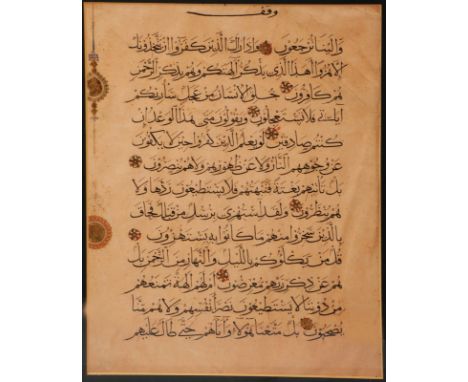 وقف
والينا ترجعون واذا راك الذين كفروا ان يتخذونك
الا هزوا اهذا الذي يذكر الهتكم وهم بذكر الرحمن
هم كافرون خلق الانسان من عجل ساريكم
اياتي فلا تستعجلون ويقولون متى هذا الوعد ان
كنتم صادقين لو يعلم الذين كفروا حين لا يكفون
عن وجوههم النار ولا عن ظهورهم ولا هم ينصرون
بل تاتيهم بغتة فتبهتهم فلا يستطيعون ردها ولا
هم ينظرون ولقد استهزئ برسل من قبلك فحاق
بالذين سخروا منهم ما كانوا به يستهزون
قل من يكلؤكم بالليل والنهار من الرحمن بل
هم عن ذكر ربهم معرضون ام لهم الهة تمنعهم
من دوننا لا يستطيعون نصر انفسهم ولا هم منا
يصحبون بل متعنا هولا واباهم حتى طال عليهم